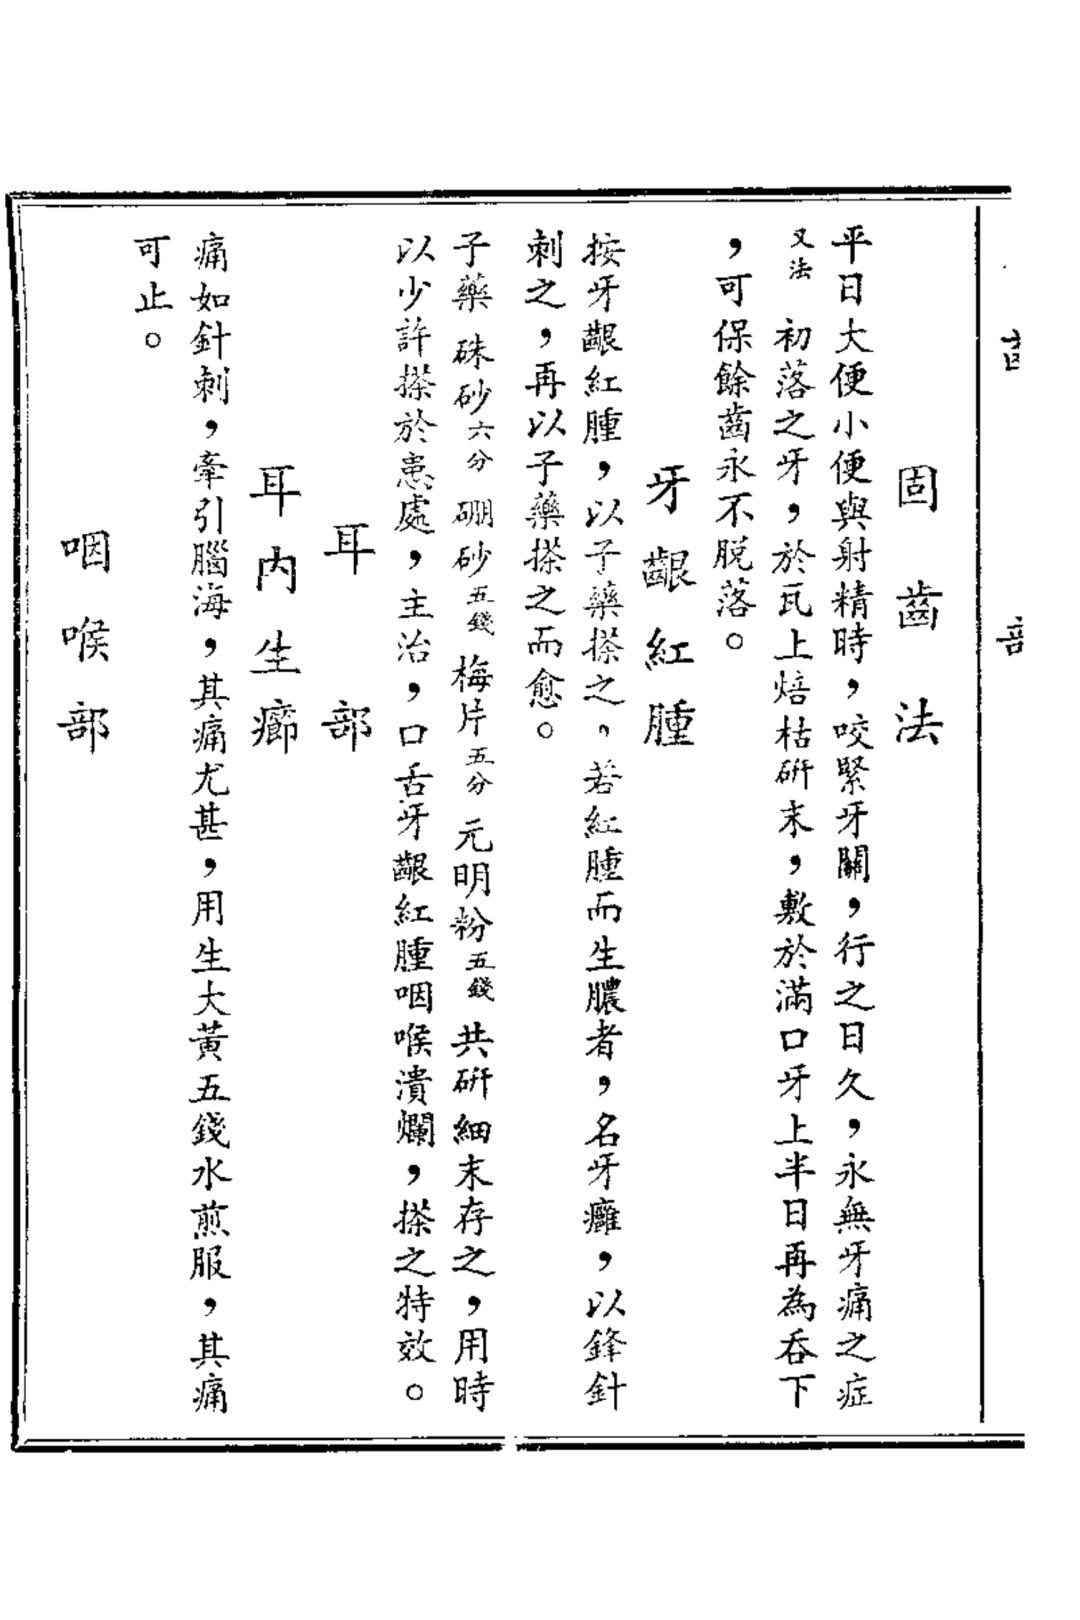 固齒法
平日大便小便與射精時，咬緊牙關，行之日久，永無牙痛之症
又法　初落之牙，於瓦上焙枯硏末，敷於滿口牙上半日再為吞下
，可保餘齒永不脫落。
牙齦紅腫
按牙齦紅腫，以子藥搽之，若紅腫而生膿者，名牙癰，以鋒針
刺之，再以子藥搽之而愈。
子藥　硃砂六分　硼砂五錢　梅片五分　元明粉五錢　共硏細末存之，用時
以少許搽於患處，主治，口舌牙齦紅腫咽喉潰爛，搽之特效。
耳部
耳內生癤
痛如針刺，牽引腦海，其痛尤甚，用生大黃五錢水煎服，其痛
可止。
咽喉部